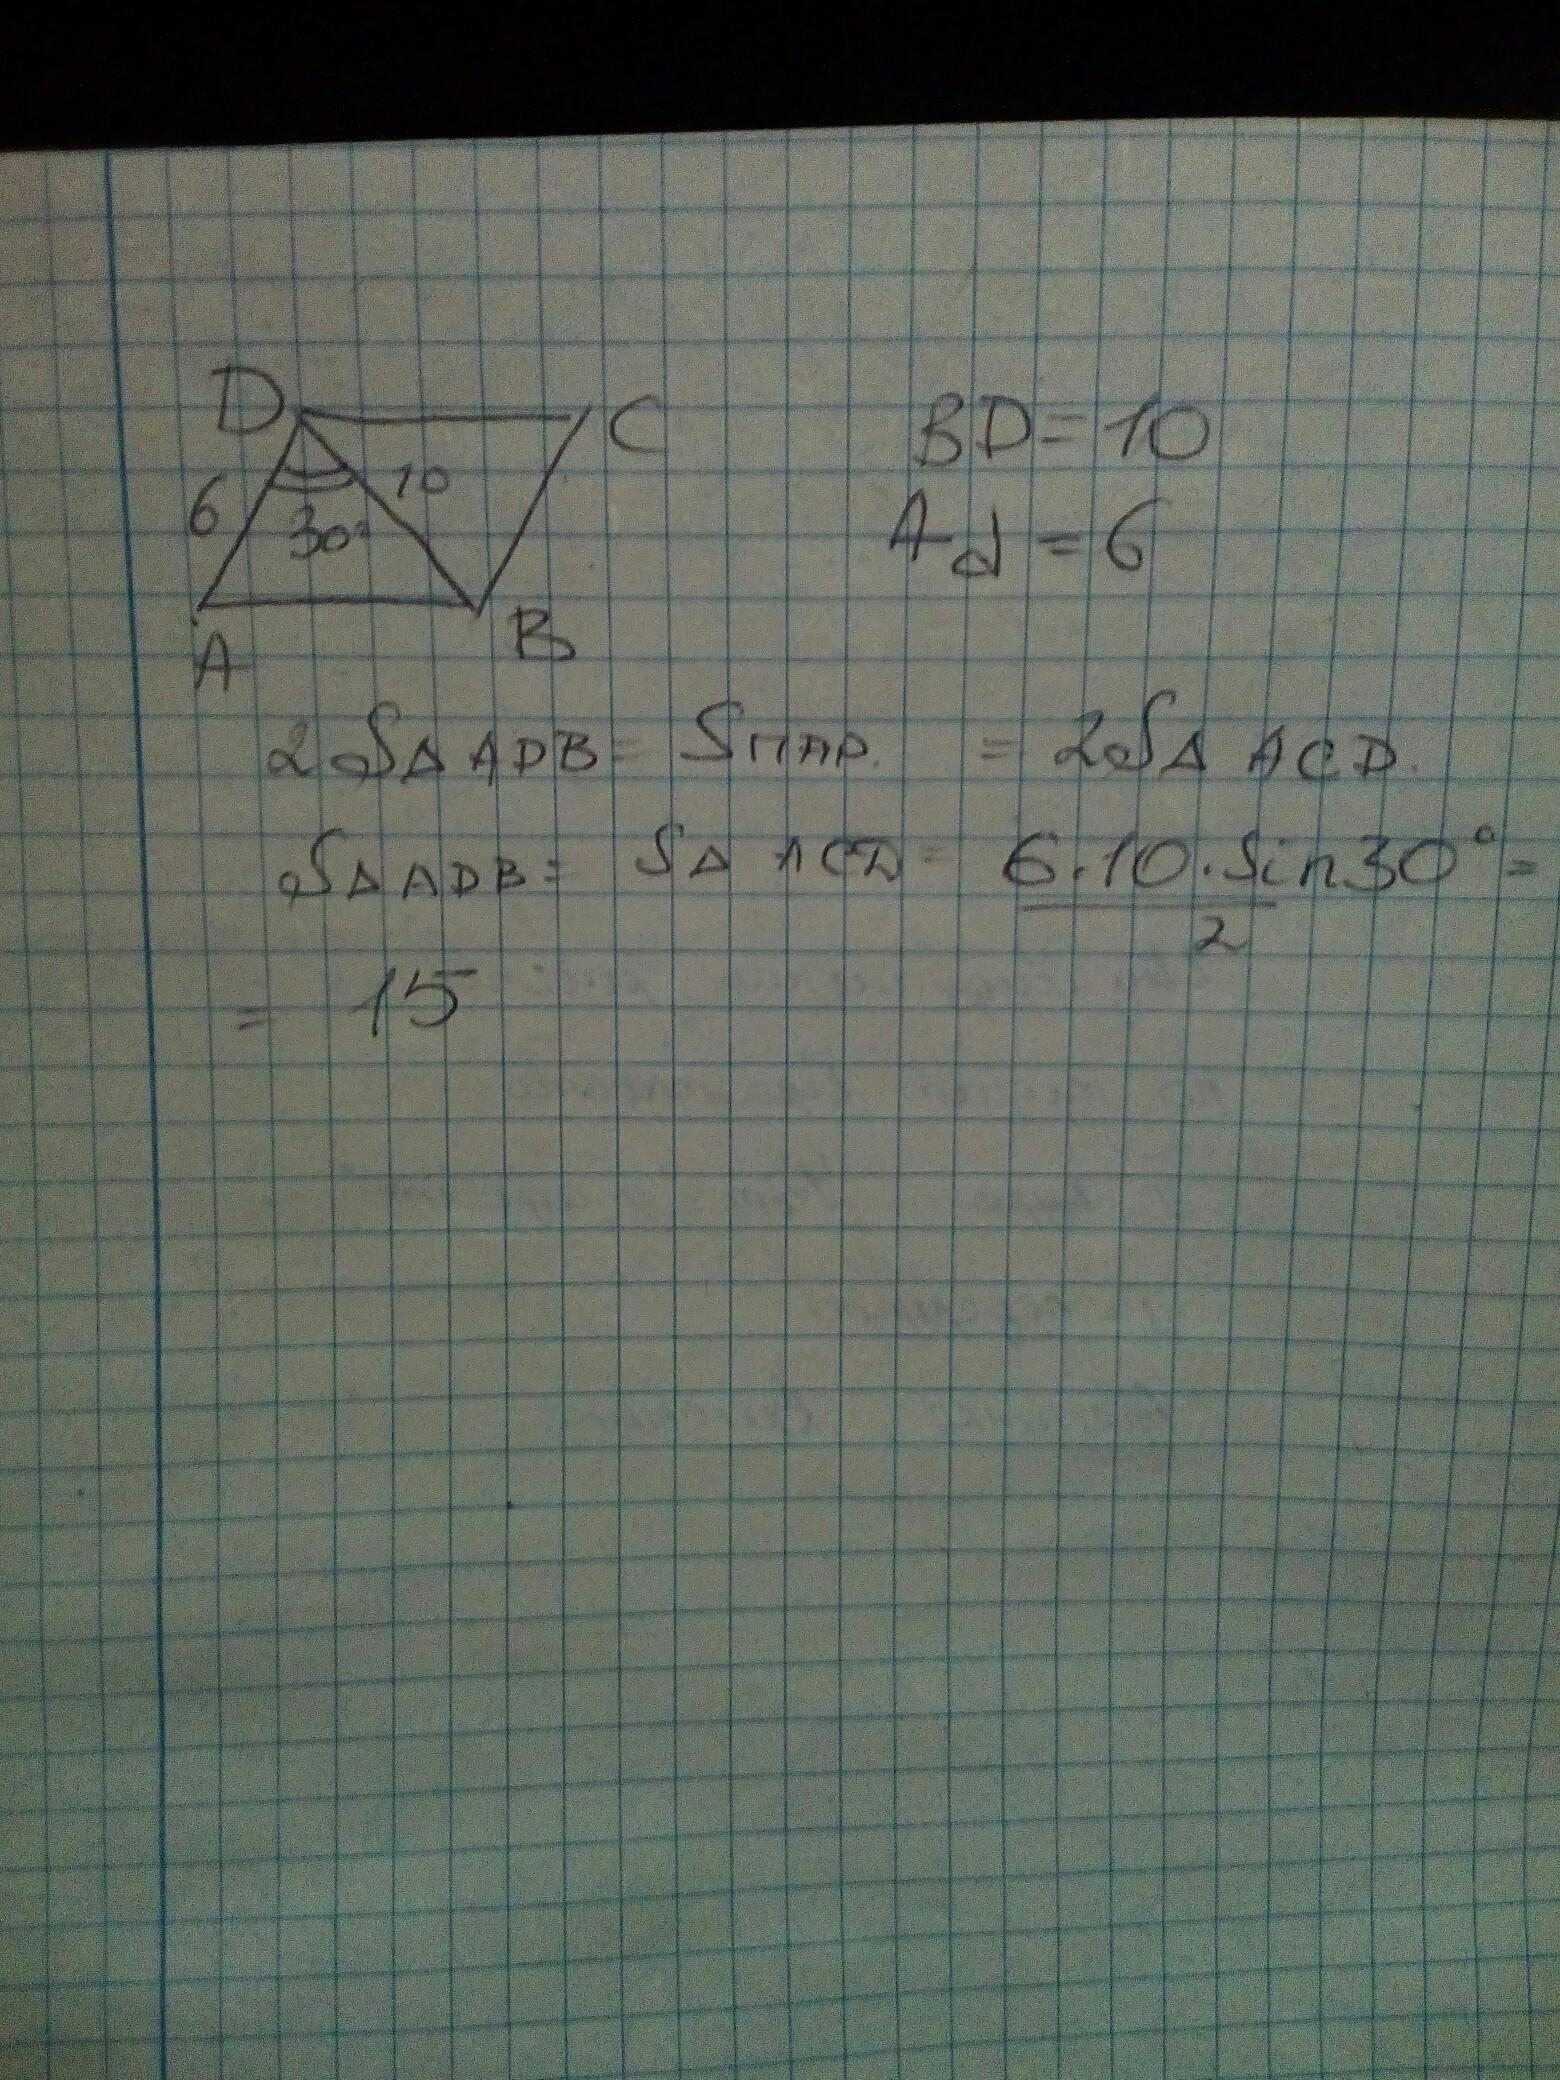 D C
6 10
30°
A B
BD = 10
Ad = 6
2 S∆ ADB = Sпар. = 2S∆ ACD.
S∆ ADB = S∆ ACD = 6·10·Sin30° =
2
= 15